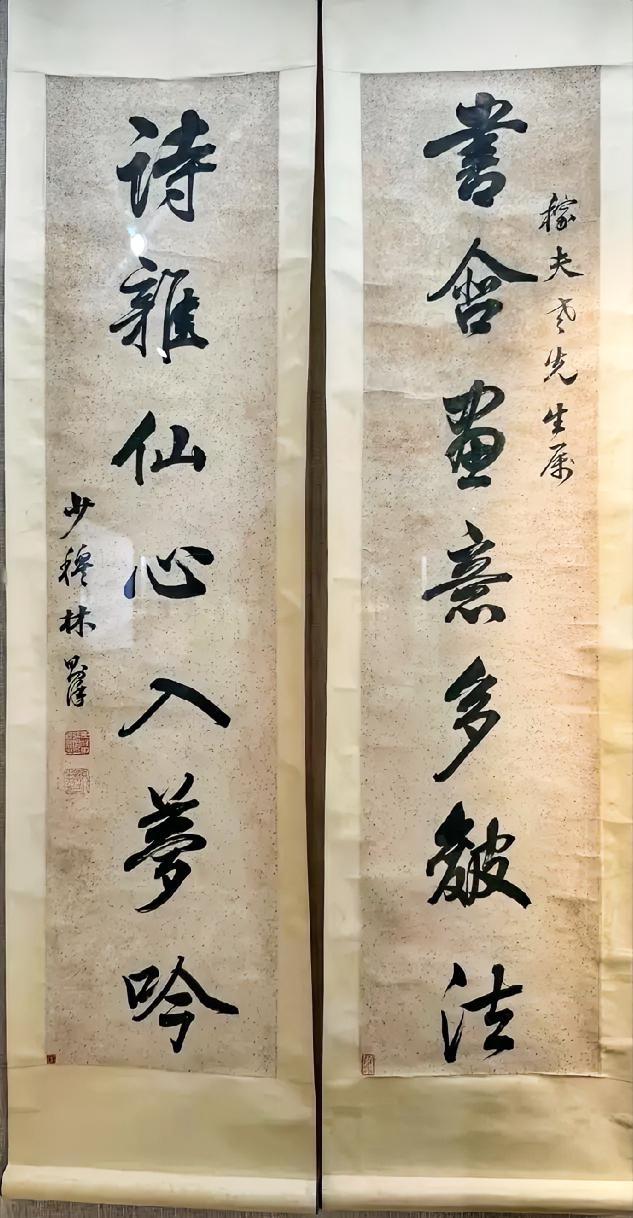 稼夫老先生属
書含畫意多皴法
诗雜仙心入夢吟
少穆林則徐